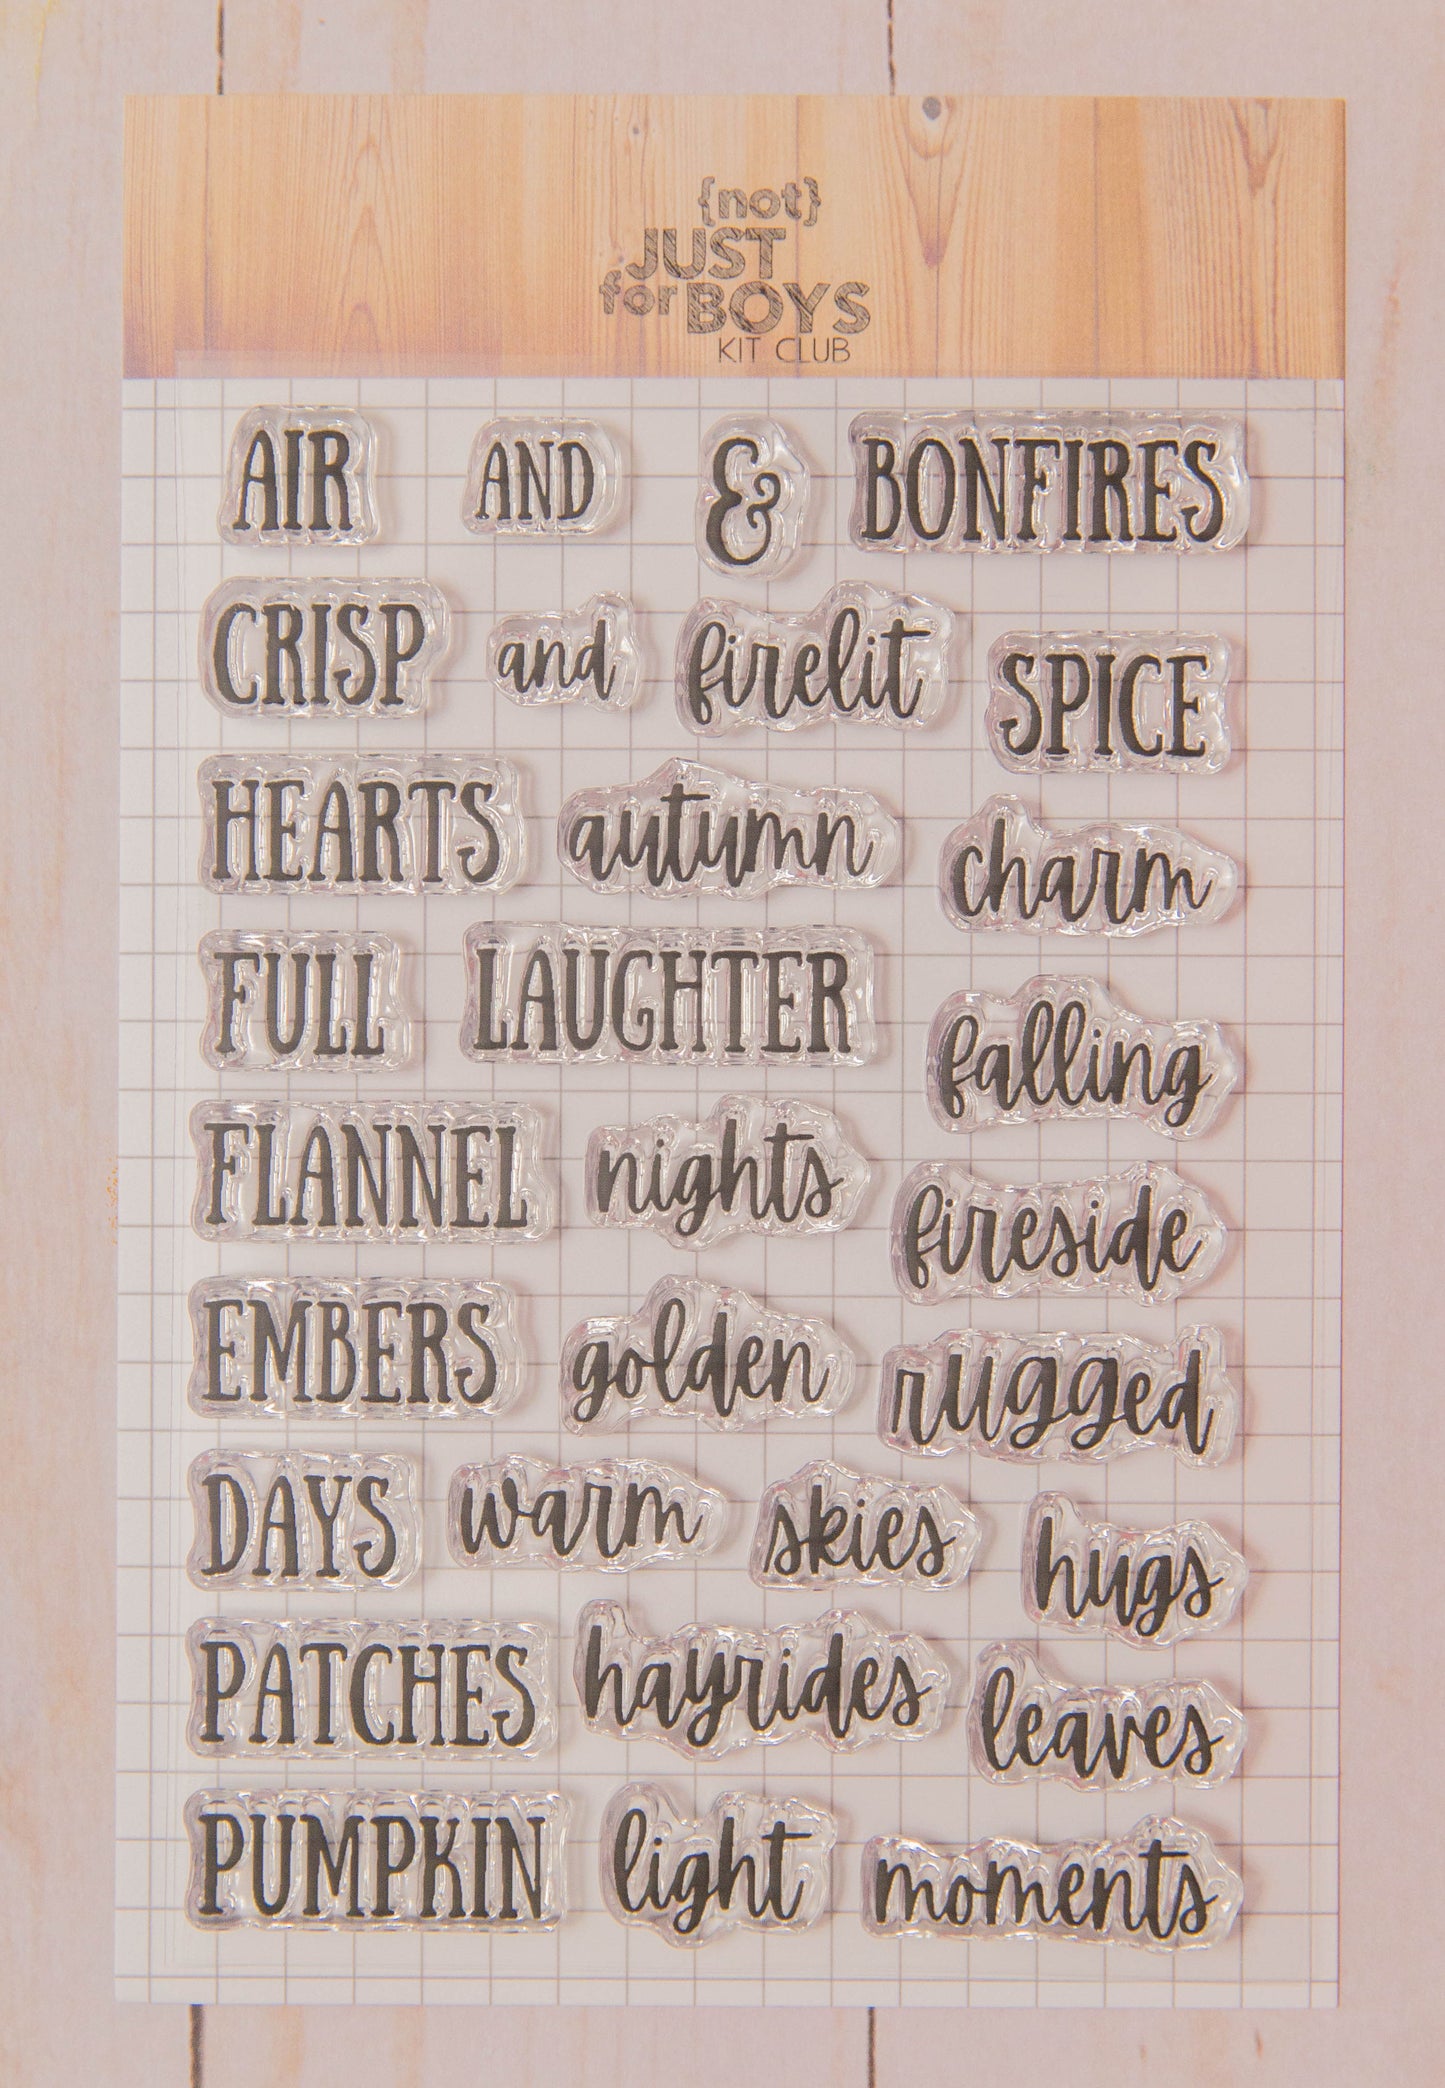 {not}
JUST
for BOYS
KIT CLUB
AIR AND & BONFIRES
CRISP and firelit SPICE
HEARTS autumn charm
FULL LAUGHTER falling
FLANNEL nights fireside
EMBERS golden rugged
DAYS warm skies hugs
PATCHES hayrides leaves
PUMPKIN light moments